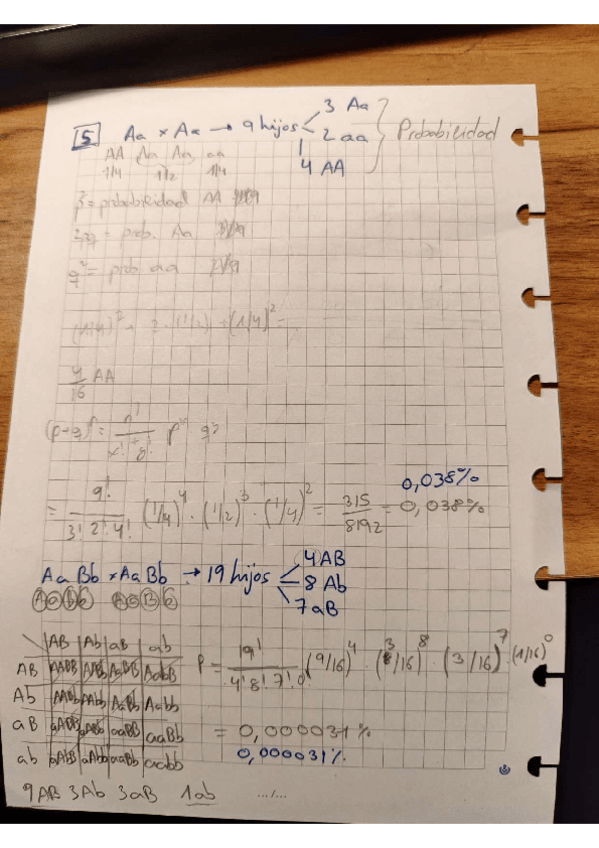 5 Aa × Aa → 9 hijos 3 Aa 2 aa 4 AA Probabilidad
AA Aa Aa aa
1/4 1/2 1/4
p² = probabilidad AA
2pq = prob. Aa
q² = prob aa
(1/4)² + 2·(1/2) + (1/4)² =
4/16 AA
(p+q)ⁿ = n!
= 9!/3!2!4! (1/4)⁴ · (1/2)³ · (1/4)² = 315/8192 = 0,038%
0,038%
AaBb × AaBb → 19 hijos 4AB 8Ab 7aB
AB Ab aB ab
AB AABB AABb AaBB AaBb
Ab AABb AAbb AaBb Aabb
aB aABB aABb aaBB aaBb
ab aAbB aAbb aabB aabb
P = 19!/4!8!7!0! (9/16)⁴ · (3/16)⁸ · (3/16)⁷ · (1/16)⁰
= 0,000031%
0,000031%
9AB 3Ab 3aB 1ab .../...